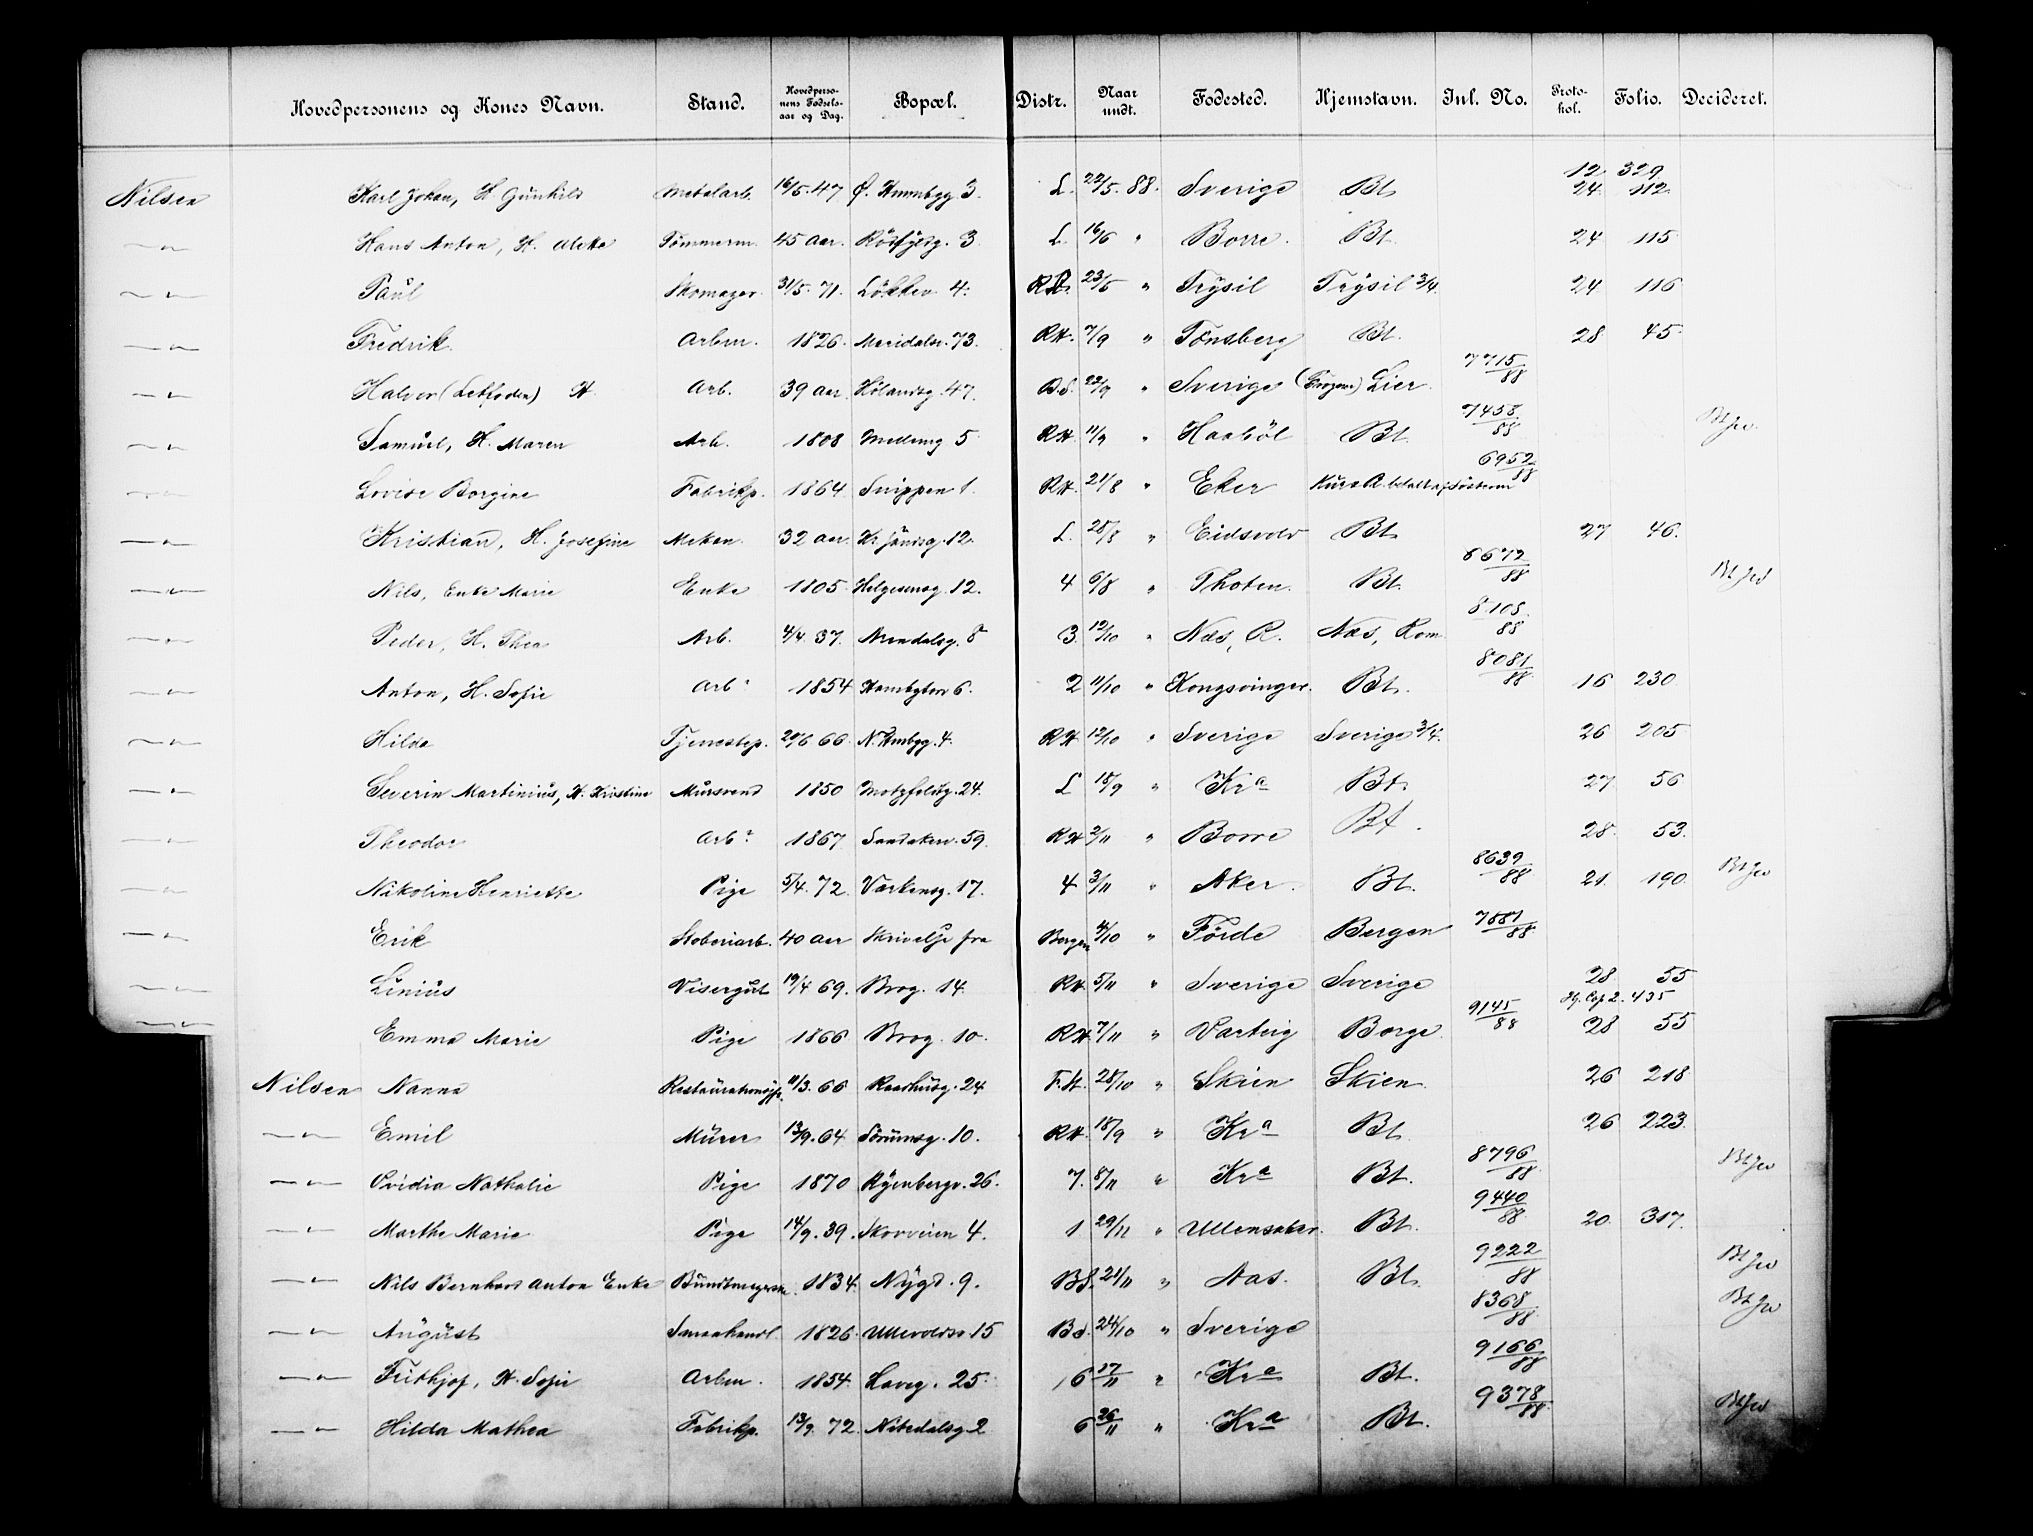 Hovedpersonens og Kones Navn. Stand. Hovedpersonens Fødselsaar og Dag. Bopæl. Distr. Naar undt. Fødested. Hjemstavn. Inl. No. Protokol. Folio. Decideret.
12 329
Nilsen Karl Johan, H. Gunhild Metalarb. 16/5.47 Ø. 3. L. 22/5.88. Sverige Bt 24 112
—"— Hans Anton, H. Tømmerm. 45 aar. 3 L. 16/6 " Borre. Bt. 24 115
—"— Paul Skomager 31/5.71. Løkkev. 4. 23/5 " Trysil Trysil 3/4. 24 116
—"— Fredrik. Arbm. 1826. Maridalsv. 73. RH. 7/9 " Tønsberg Bt. 28 45
—"— Halvor (Letfoden) H. Arb. 39 aar. Hølandsg. 47. B.S. 22/9 " Sverige Lier. 7715/88
—"— Samuel, H. Maren Arb. 1808 5 RH. 11/9 " Haabøl Bt. 7458/88 Bt Jw.
—"— Lovise Borgine Fabrikp. 1864 Snippen 1. RH. 21/8 " Eker 6952/88
—"— Kristian, H. Josefine Mekan. 32 aar. 12. L. 28/8 " Eidsvold Bt 27 46.
—"— Nils, Enke Marie Enke 1805. Helgesensg. 12. 4 6/8 " Thoten. Bt. 6672/88 Bt Jw
—"— Peder, H. Thea Arb. 4/4.37. Arendalsg. 8 3. 12/10 " Næs, R. Næs, Rom. 8108/88
—"— Anton, H. Sofie Arbr 1854 6. 2 11/10 " Kongsvinger. Bt. 8081/88 16 230.
—"— Hilda Tjenestep. 29/6 66. N. 4. RH 12/10 " Sverige Sverige 3/4. 26 205
—"— Severin Martinius, H. Kristine Mursvend 1850 Motzfeldsg. 24. L 18/9 " Kra Bt 27. 56
—"— Theodor Arbr. 1867. Sandakerv. 59. RH 2/11 " Borre Bt. 28. 53.
—"— Nikoline Henriette Pige 5/4.72. Værkensg. 17. 4 3/11 " Aker. Bt. 8639/88 21. 190. Bt Jw
—"— Erik 40 aar Skrivelse fra Bergen 4/10 " Førde Bergen 7881/88
—"— Linius Visergut 19/4 69. Brog. 14. RH. 5/11 " Sverige Sverige 28 55
—"— Emma Marie Pige 1866 Brog. 10. RH. 7/11 " Varteig Borge. 9145/88 2. 435 28 55
Nilsen Nanna Restaurationsp. 11/3.66 Raadhusg. 24 F.H. 28/10 " Skien Skien. 26 218
—"— Emil Murer 13/9.64. Sørumsg. 10. RH. 18/9 " Kra Bt 26 223.
—"— Ovidia Nathalie Pige 1870 Ryenbergv. 26. 7. 8/11 " Kra Bt. 8796/88 Bt Jw
—"— Marthe Marie Pige 14/9.39. Skovveien 4. 1 29/11 " Ullensaker. Bt. 9440/88 20. 317.
—"— Nils Bernhard Anton Enke Buntmagerske. 1834. Nygd. 9. BS. 21/11 " Aas. Bt. 9222/88 Bt Jw
—"— August Smaahandl. 1826. Ullevoldsv 15 B.S. 24/10 " Sverige 8368/88 Bt Jw
—"— Frithjof, H. Sofie Arbm. 1854. 25. 6 27/11 " Kra Bt. 9166/88
—"— Hilda Mathea Fabrikp. 13/9.72. Nitedalsg. 2 6 26/11 " Kra Bt. 9378/88 Bt Jw